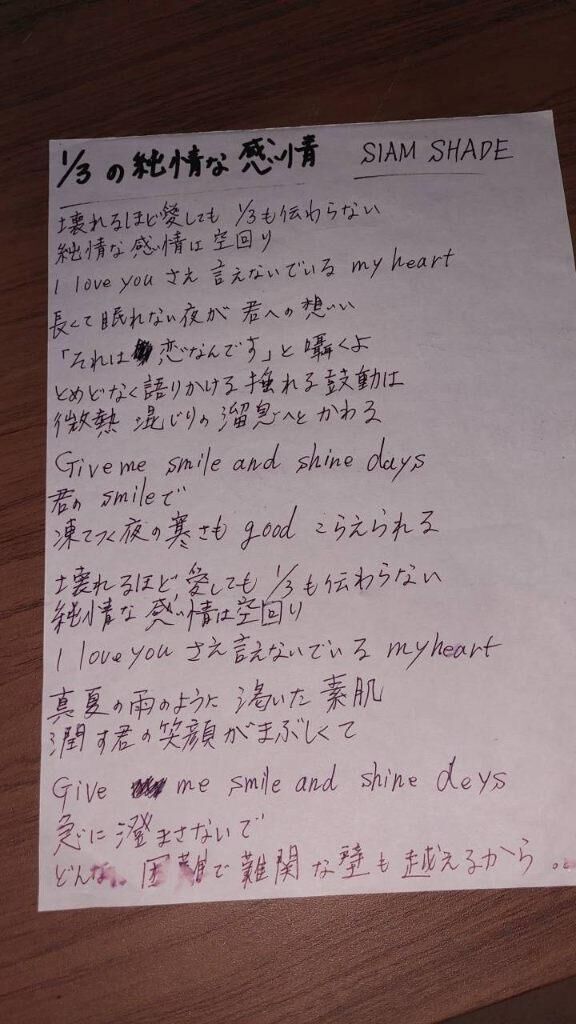 1/3の純情な感情 SIAM SHADE
壊れるほど愛しても 1/3も伝わらない
純情な感情は空回り
I love youさえ言えないでいる my heart
長くて眠れない夜が 君への想いい
「それは 恋なんです」と囁くよ
とめどなく語りかける 揺れる鼓動は
微熱 混じりの溜息へと かわる
Give me smile and shine days
君の smileで
凍てつく夜の寒さも good こらえられる
壊れるほど愛しても 1/3も伝わらない
純情な感情は空回り
I love youさえ言えないでいる my heart
真夏の雨のように 渇いた素肌
潤す君の笑顔がまぶしくて
Give me smile and shine deys
急に澄まさないで
どんな.. 困難で難関な壁も越えるから..